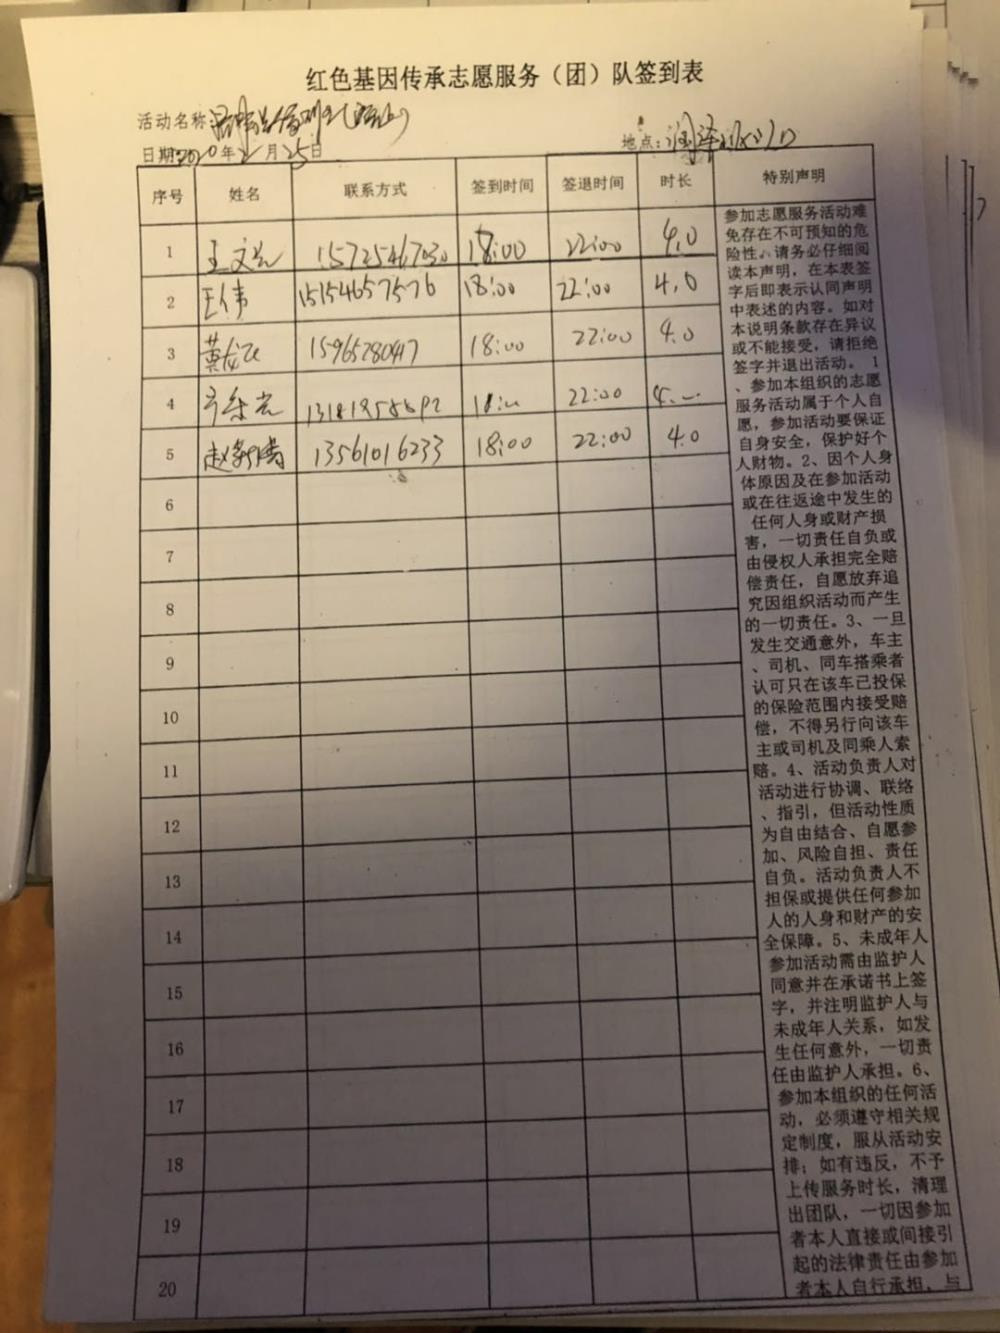 红色基因传承志愿服务（团）队签到表
活动名称
日期2020年2月25日 地点：
序号 姓名 联系方式 签到时间 签退时间 时长 特别声明
1 王文 15725467030 18:00 22:00 4.0
2 王伟 15154657576 18:00 22:00 4.0
3 15965280417 18:00 22:00 4.0
4 22:00
5 赵 13561016233 18:00 22:00 4.0
6
7
8
9
10
11
12
13
14
15
16
17
18
19
20
参加志愿服务活动难
免存在不可预知的危
险性。请务必仔细阅
读本声明，在本表签
字后即表示认同声明
中表述的内容。如对
本说明条款存在异议
或不能接受，请拒绝
签字并退出活动。 1
、参加本组织的志愿
服务活动属于个人自
愿，参加活动要保证
自身安全，保护好个
人财物。2、因个人身
体原因及在参加活动
或在往返途中发生的
任何人身或财产损
害，一切责任自负或
由侵权人承担完全赔
偿责任，自愿放弃追
究因组织活动而产生
的一切责任。3、一旦
发生交通意外，车主
、司机、同车搭乘者
认可只在该车已投保
的保险范围内接受赔
偿，不得另行向该车
主或司机及同乘人索
赔。4、活动负责人对
活动进行协调、联络
、指引，但活动性质
为自由结合、自愿参
加、风险自担、责任
自负。活动负责人不
担保或提供任何参加
人的人身和财产的安
全保障。5、未成年人
参加活动需由监护人
同意并在承诺书上签
字，并注明监护人与
未成年人关系，如发
生任何意外，一切责
任由监护人承担。6、
参加本组织的任何活
动，必须遵守相关规
定制度，服从活动安
排；如有违反，不予
上传服务时长，清理
出团队，一切因参加
者本人直接或间接引
起的法律责任由参加
者本人自行承担，与